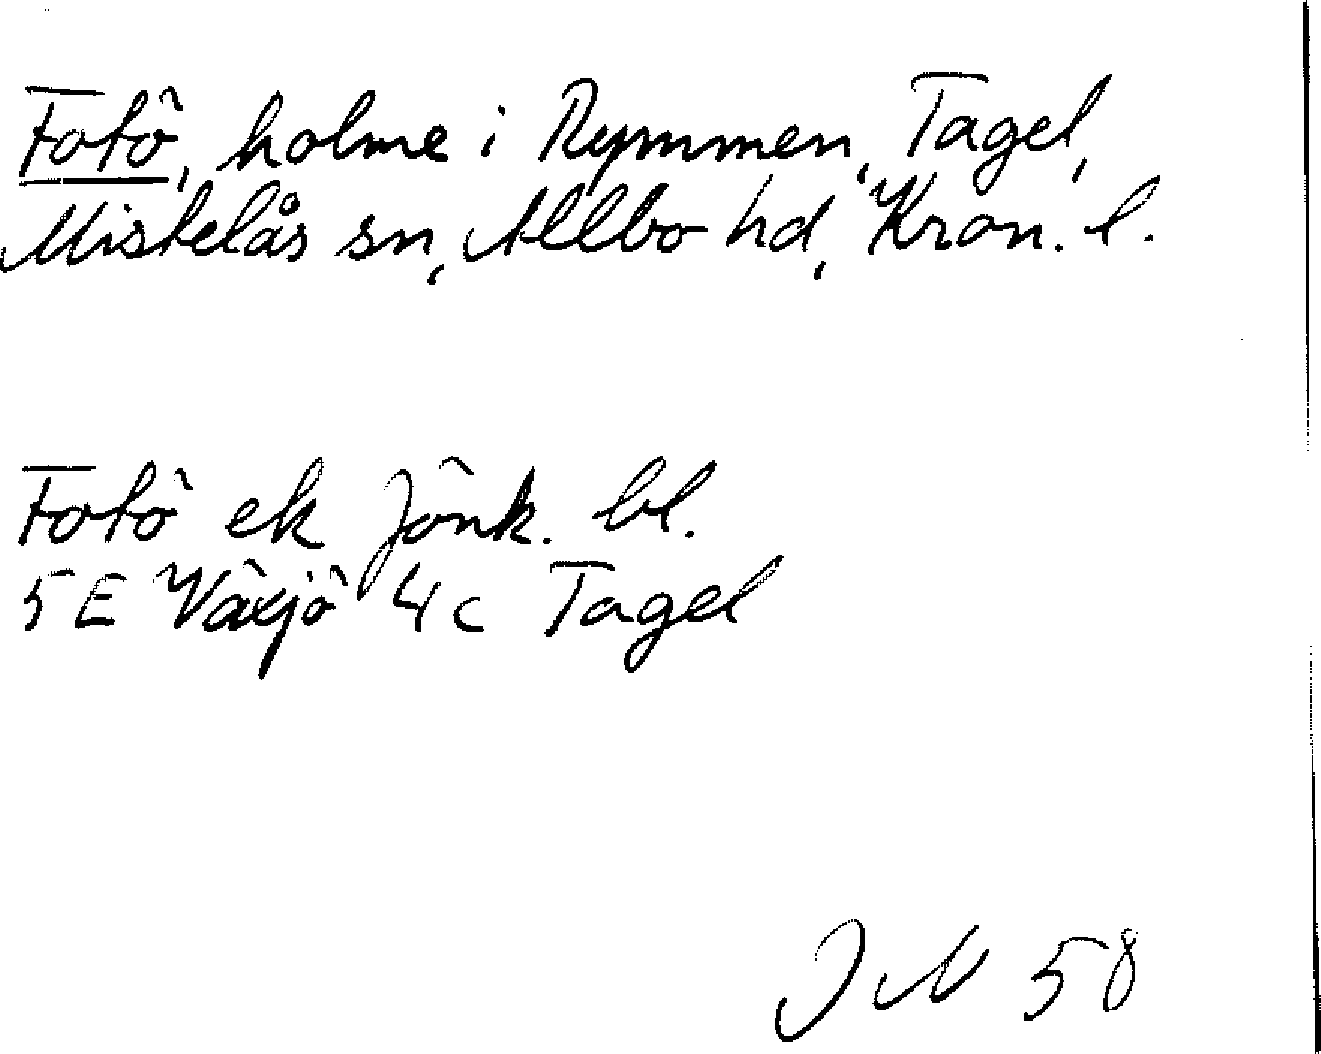 Fotö, holme i Rymmen, Tagel,
Mistelås sn, Allbo hd, Kron. l.
Fotö ek Jönk. bl.
5E Växjö 4c Tagel
JN 58